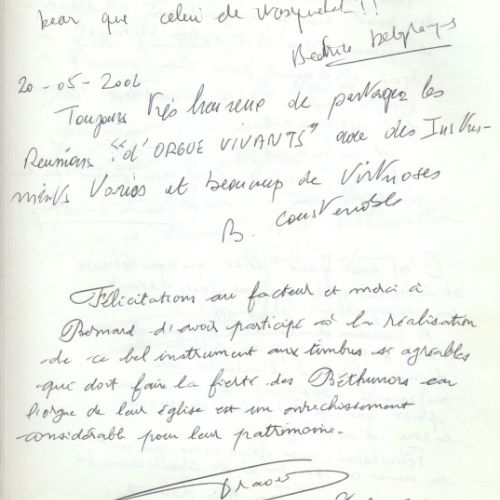 beau que celui de Wasquehal !!
Béatrice Delgrange
20-05-2002
Toujours très heureuse de partager les
Reunions "d'ORGUE VIVANTS" avec des Instru-
ments Variés et beaucoup de Virtuoses
B. Constenoble
Félicitations au facteur et merci à
Bernard d'avoir participé à la réalisation
de ce bel instrument aux timbres si agréables
qui doit faire la fierté des Béthunois car
l'orgue de leur église est un enrichissement
considérable pour leur patrimoine.